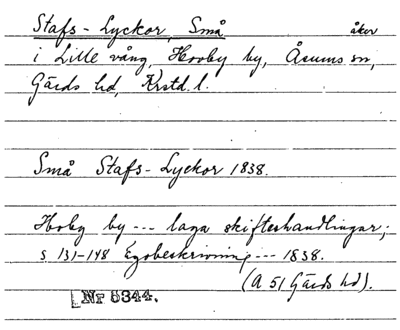 Stafs-Lyckor, Små åker
i Lille vång, Hovby by, Åsums sn,
Gärds hd, Krstd. l.
Små Stafs-Lyckor 1838.
Hoby by --- laga skifteshandlingar;
s 131-148 Egobeskrivning --- 1838.
(A 51 Gärds hd).
Nr 8344.